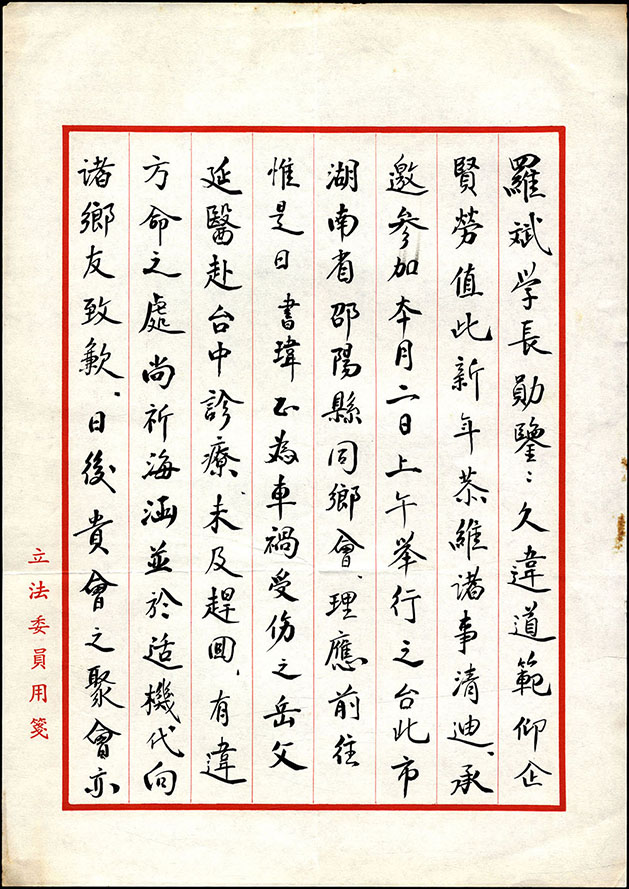 羅斌学長勛鑒：久違道範仰企
賢勞值此新年恭維諸事清迪、承
邀參加本月二日上午举行之台北市
湖南省邵陽縣同鄉會、理應前往
惟是日書瑋正為車禍受傷之岳父
延醫赴台中診療、未及趕回、有違
方命之處尚祈海涵並於适機代向
诸鄉友致歉、日後貴會之聚會亦
立法委員用箋